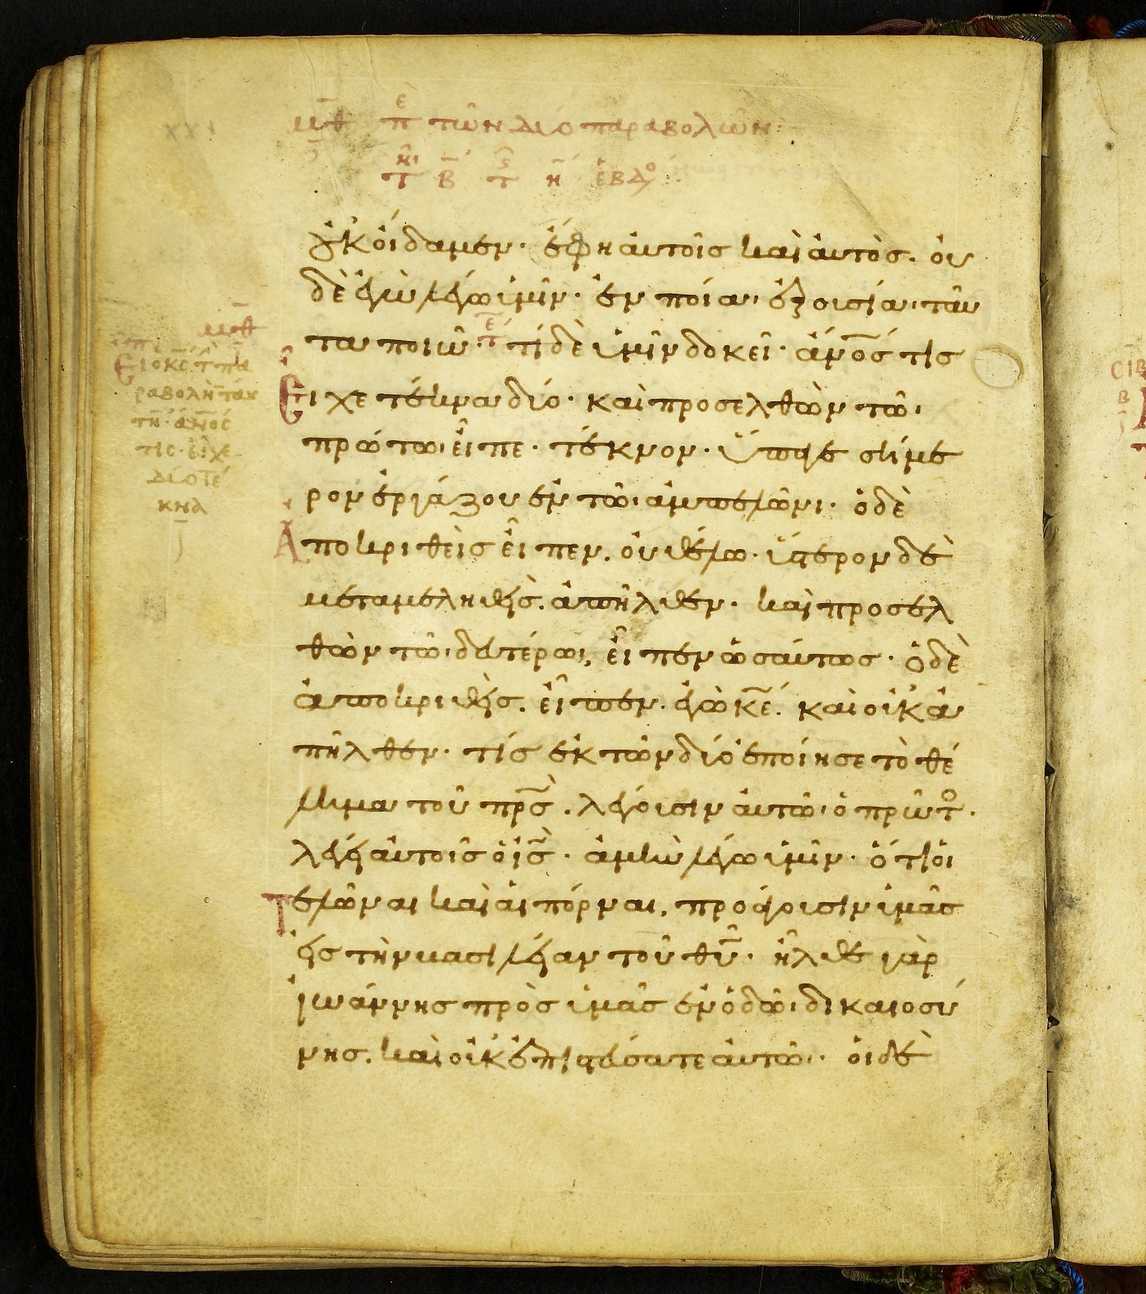 π̅ε τῶν δύο παραβολῶν:
τῆ β̅ τ̅ς η̅ ἑβδο
οὐκ οἴδαμεν· ἔφη αὐτοῖς καὶ αὐτὸς. οὐ
δὲ ἐγὼ λέγω ὑμῖν· ἐν ποία ἐξουσία ταῦ
τα ποιῶ· τί δὲ ὑμῖν δοκεῖ· ἄνο̅ς τίς
Εἶχε τέκνα δύο· καὶ προσελθὼν τῶ
πρώτω εἶπε· τέκνον· ὕπαγε σήμε
ρον ἐργάζου ἐν τῶ ἀμπελῶνι· ὁ δὲ
Ἀποκριθεὶς εἶπεν. οὐ θέλω· ὕστερον δὲ
μεταμεληθεὶς. ἀπῆλθεν· καὶ προσελ
θὼν τῶ δευτέρω, εἶπεν ὡσαύτως· ὁ δὲ
ἀποκριθεὶς. εἶπεν. ἐγὼ κ̅ε. καὶ οὐκ ἀ
πῆλθεν· τίς ἐκ τῶν δύο ἐποίησε τὸ θέ
λημα τοῦ πρ̅ς. λέγουσιν αὐτῶ ὁ πρῶτο.
λέγει αὐτοῖς ὁ ι̅ς· ἀμὴν λέγω ὑμῖν· ὅτι οἱ
Τελῶναι καὶ αἱ πόρναι, προάγουσιν ὑμᾶς
εἰς τὴν βασιλείαν τοῦ θ̅υ· ἦλθε γὰρ
ἰωάννης πρὸς ὑμᾶς ἐν ὁδῶ δικαιοσύ
νης. καὶ οὐκ ἐπιστεύσατε αὐτῶ· οἱ δὲ
Εἶ ὁ κς τ̅ πα
ραβολὴν ταύ
τη· ἄνο̅ς
τις· εἶχε
δύο τέ
κνα